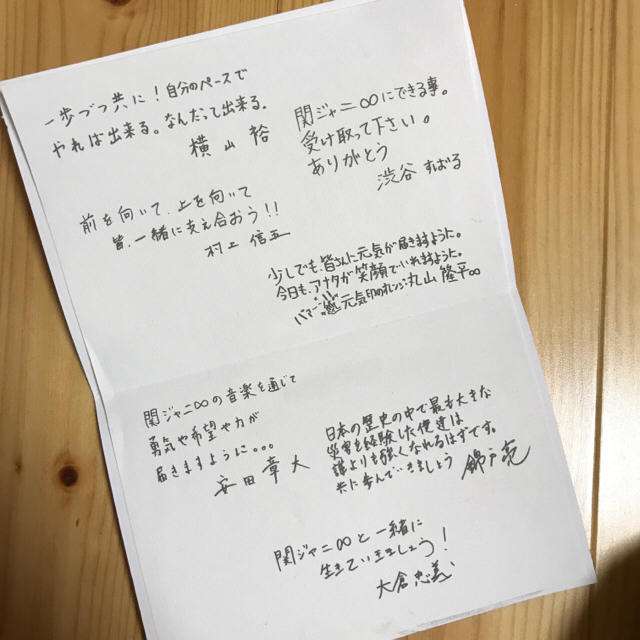 一歩づつ共に！自分のペースで
やれば出来る。なんだって出来る。
横山 裕
関ジャニ∞にできる事。
受け取って下さい。
ありがとう
渋谷 すばる
前を向いて、上を向いて
皆、一緒に支え合おう！！
村上 信五
少しでも、皆さんに元気が届きますように。
今日も、アナタが笑顔でいれますように。
元気印のオレンジ丸山 隆平∞
関ジャニ∞の音楽を通じて
勇気や希望や力が
届きますように。。。
安田 章大
日本の歴史の中で最も大きな
災害を経験した僕達は
誰よりも強くなれるはずです。
共に歩んでいきましょう
錦戸亮
関ジャニ∞と一緒に
生きていきましょう！
大倉忠義